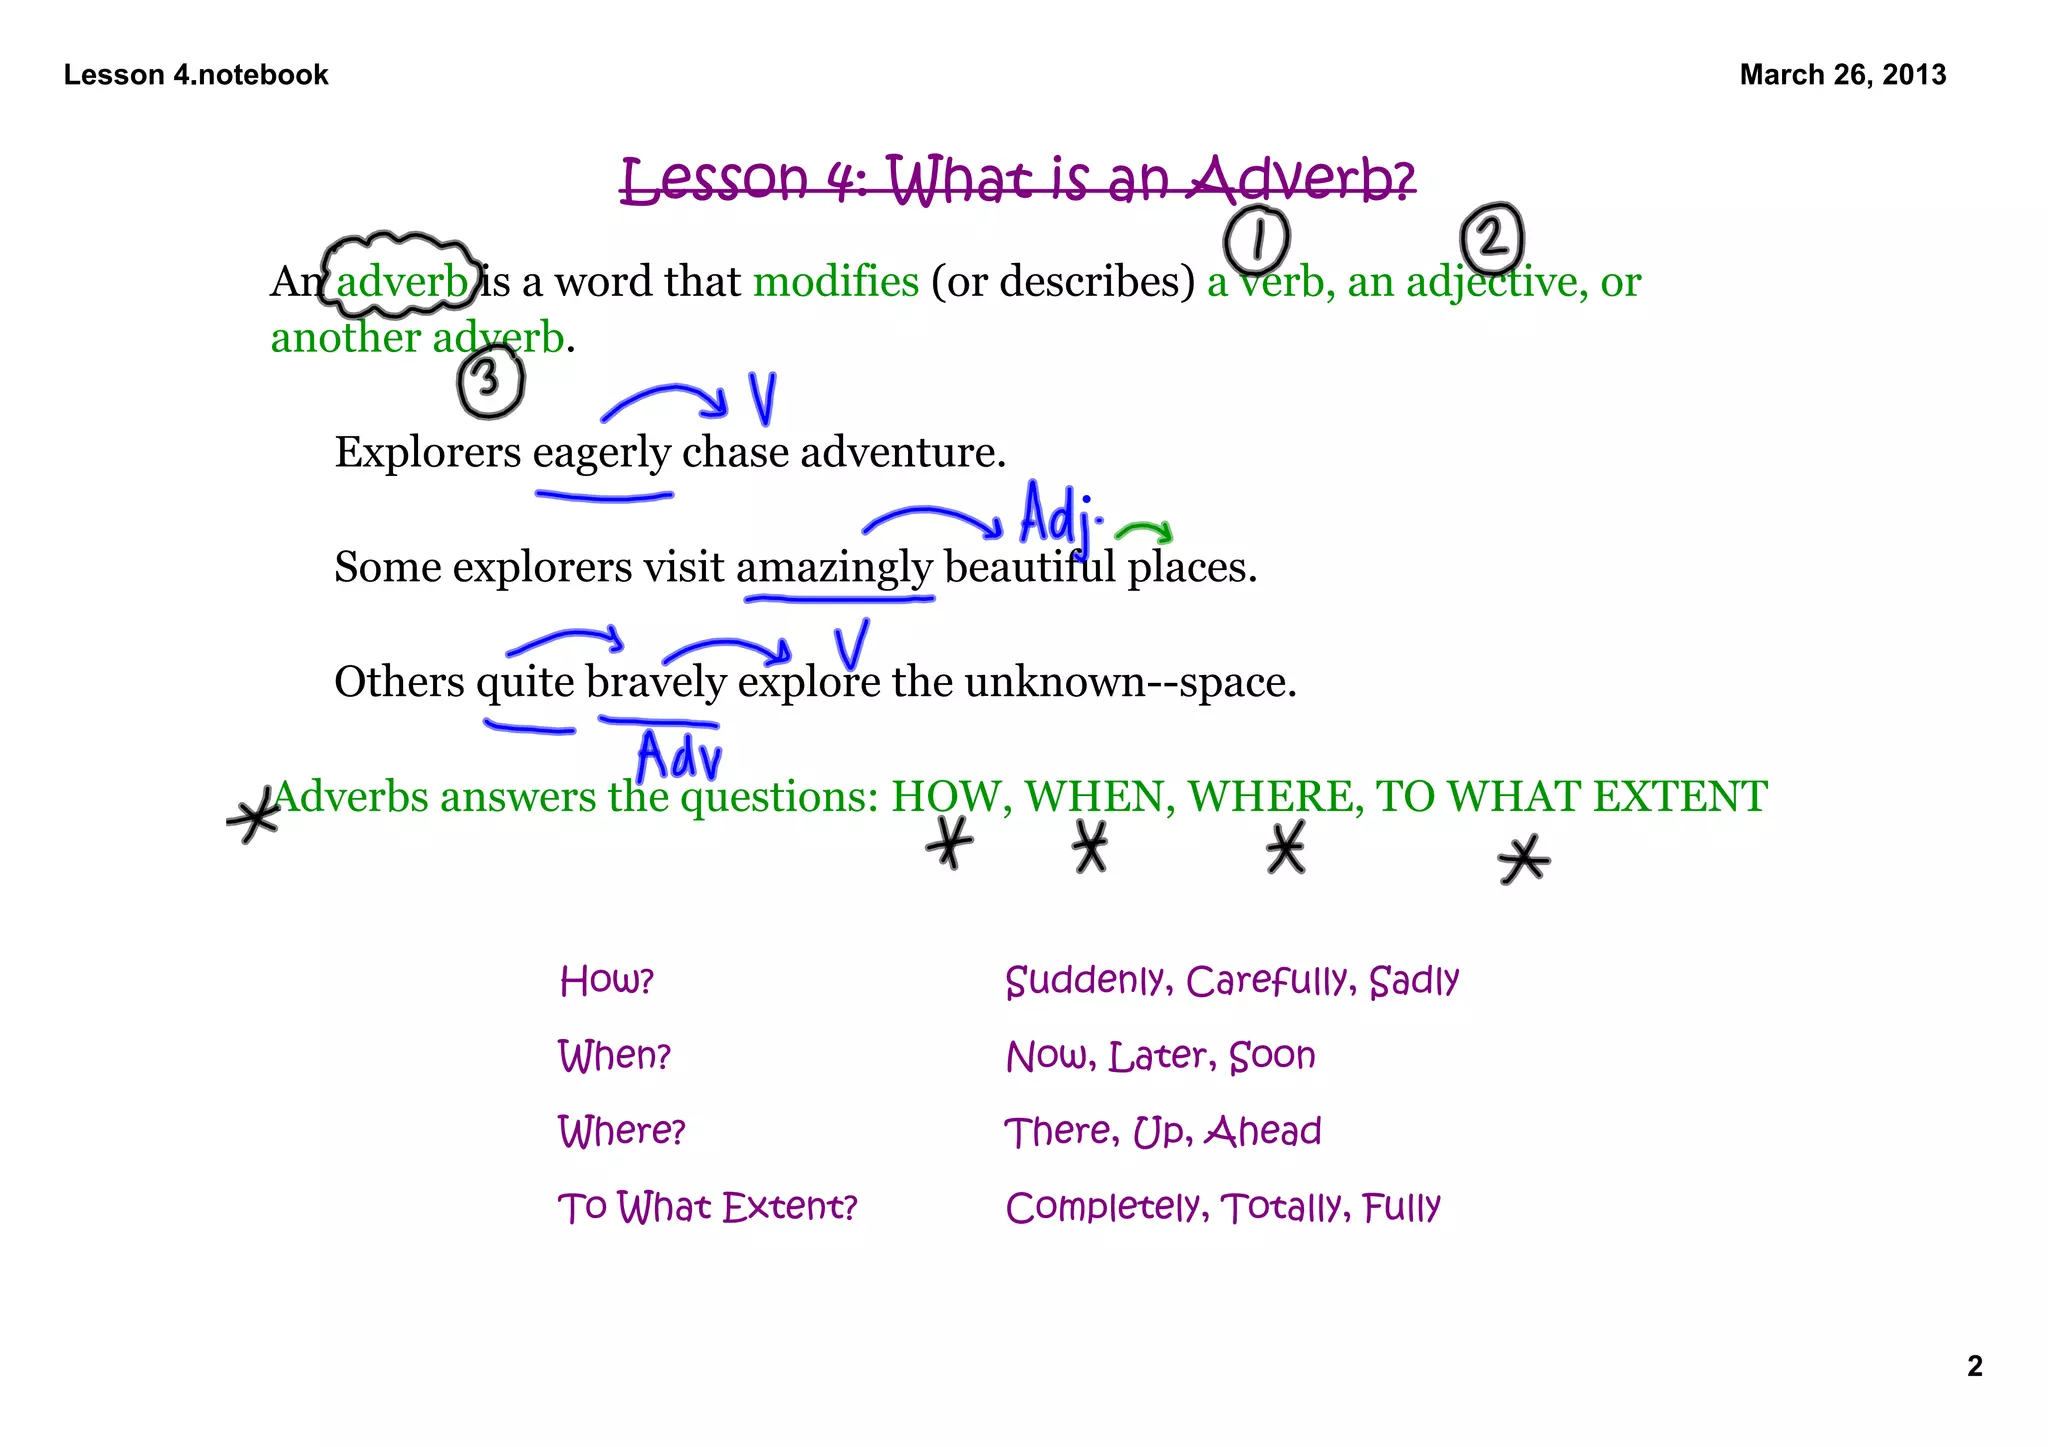 Lesson 4.notebook
March 26, 2013
Lesson 4: What is an Adverb?
1 2
An adverb is a word that modifies (or describes) a verb, an adjective, or
another adverb.
3
V
Explorers eagerly chase adventure.
Adj.
Some explorers visit amazingly beautiful places.
V
Others quite bravely explore the unknown--space.
Adv
* Adverbs answers the questions: HOW, WHEN, WHERE, TO WHAT EXTENT
* * * *
How? Suddenly, Carefully, Sadly
When? Now, Later, Soon
Where? There, Up, Ahead
To What Extent? Completely, Totally, Fully
2